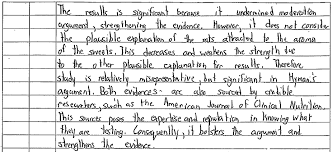 The results is significant because it undermined moderation
argument, strengthening the evidence. However, it does not consider
the plausible explanation of the rats attracted to the aroma
of the sweets. This decreases and weakens the strength due
to the other plausible explanation for results. Therefore
study is relatively misrepresentative, but significant in Hyman's
argument. Both evidences are also sourced by credible
researchers, such as the American Journal of Clinical Nutrition.
This source poses the expertise and reputation in knowing what
they are testing. Consequently, it bolsters the argument and
strengthens the evidence.